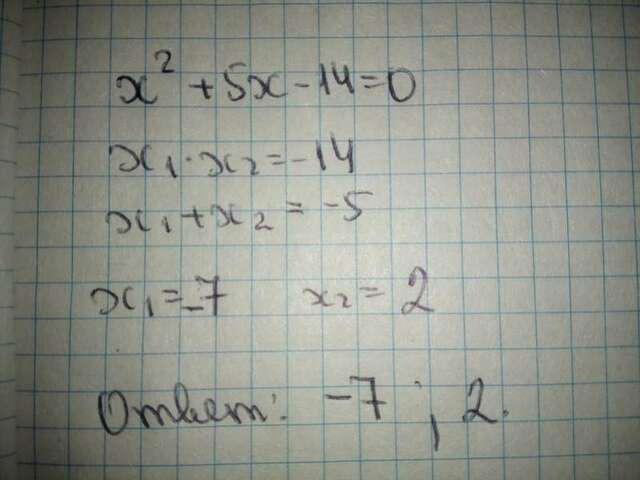 x² + 5x - 14 = 0
x₁ · x₂ = -14
x₁ + x₂ = -5
x₁ = -7 x₂ = 2
Ответ: -7 ; 2.